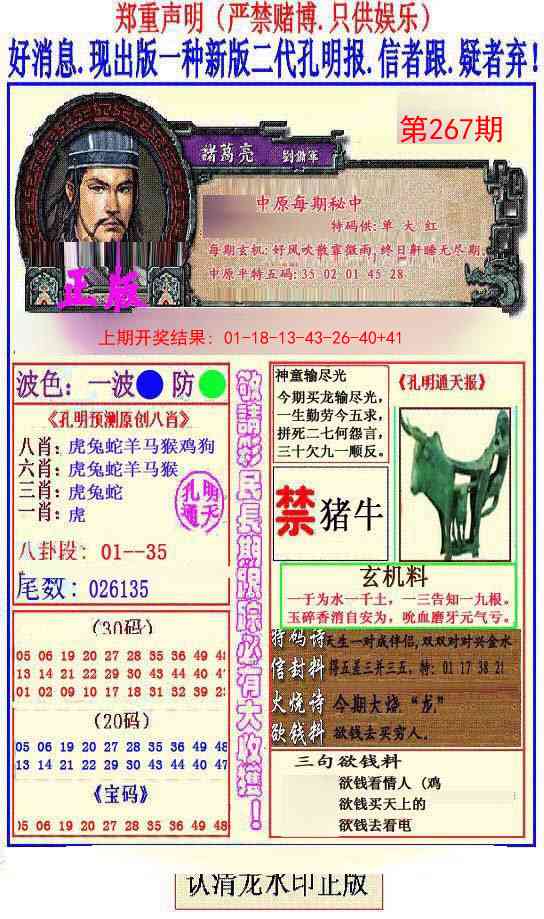 郑重声明（严禁赌博.只供娱乐）
好消息.现出版一种新版二代孔明报.信者跟.疑者弃！
第267期
諸葛亮
中原每期秘中
特码供:单 大 红
每期玄机:好风吹散霏微雨,终日新睡无尽期.
中原平特五码:35 02 01 45 28
正版
上期开奖结果: 01-18-13-43-26-40+41
波色: 一波 防
《孔明预测原创八肖》
八肖: 虎兔蛇羊马猴鸡狗
六肖: 虎兔蛇羊马猴
三肖: 虎兔蛇
一肖: 虎
孔明
通天
八卦段: 01--35
尾数: 026135
(30码)
05 06 19 20 27 28 35 36 49
13 14 21 22 29 30 37 38 45
01 02 09 10 17 18 31 32 39
(20码)
05 06 19 20 27 28 35 36 49 48
13 14 21 22 29 30 37 38 45 47
《宝码》
05 06 19 20 27 28 35 36 49 48
敬請彩民長期跟踪必有大收獲！
神童输尽光
今期买龙输尽光,
一生勤劳今五求,
拼死二七何怨言,
三十欠九一顺反。
《孔明通天报》
禁 猪牛
玄机料
一于为水一千土，一三告知一九根。
玉碎香消自安为，吮血磨牙元气亏。
特码诗 天生一对成伴侣,双双对对兴金水
信封料 得五差三并三五，特：01 17 38 21
火烧诗 今期大烧“龙”
欲钱料 欲钱去买穷人.
三句欲钱料
欲钱看情人（鸡
欲钱买天上的
欲钱去看电
认清龙水印正版